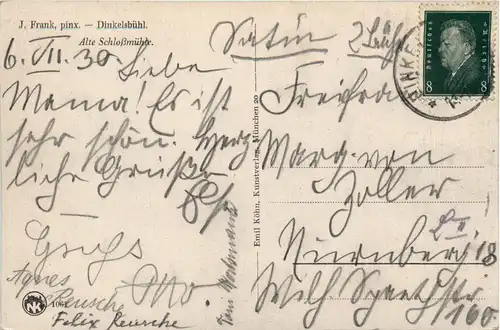 J. Frank, pinx. — Dinkelsbühl.
Alte Schloßmühle.
6. VII. 30. Liebe
Mama! Es ist
sehr schön. Herz
liche Grüße
Gruß
Agnes
Reusche
Felix Reusche
Emil Köhn, Kunstverlag, München 20
Deutsches Reich
8 8
Freifrau
Marg. von
Zoller
Nürnberg
Wilh Spaeth Str
160